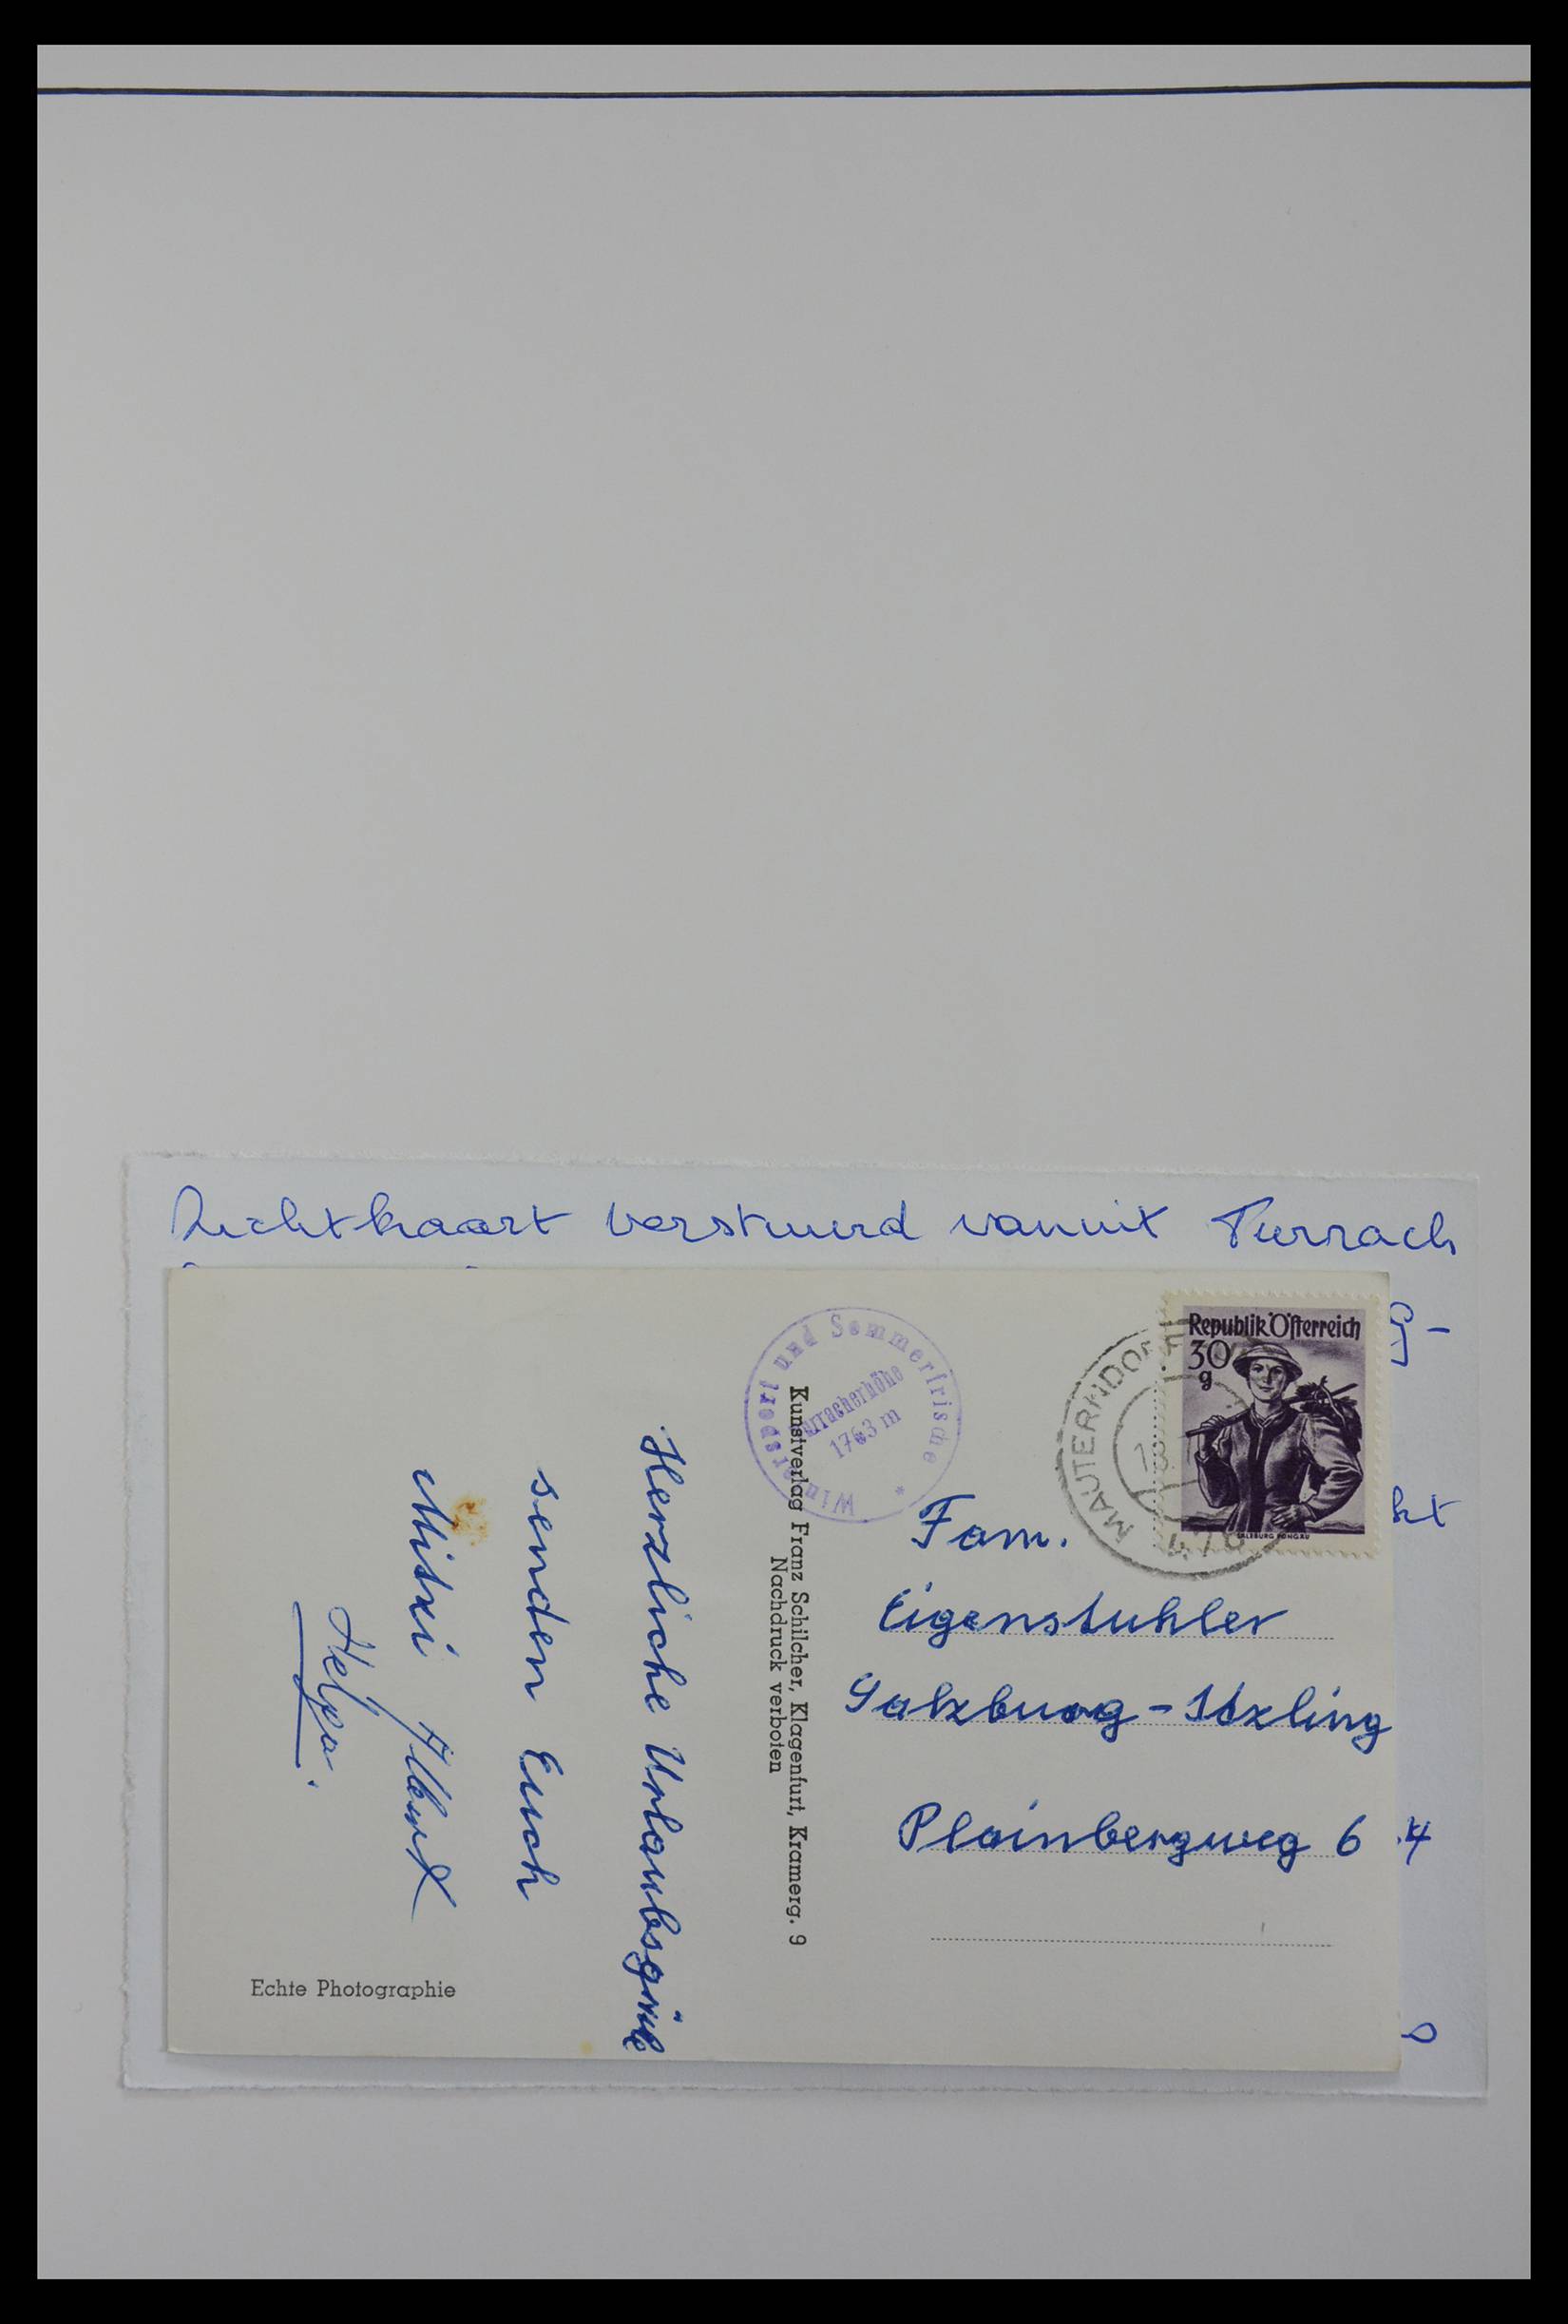 Zichtkaart verstuurd vanuit Turrach
g-
kt
4
Wintersport und Sommerfrische *
Turracherhöhe
1763 m
Republik Österreich
30
g
SALZBURG PONGAU
MAUTERNDORF
Fam.
Eigenstuhler
Salzburg - Itzling
Plainbergweg 6
Kunstverlag Franz Schilcher, Klagenfurt, Kramerg. 9
Nachdruck verboten
Herzliche Urlaubsgrüße
senden Euch
Mitzi Albert
Helga.
Echte Photographie